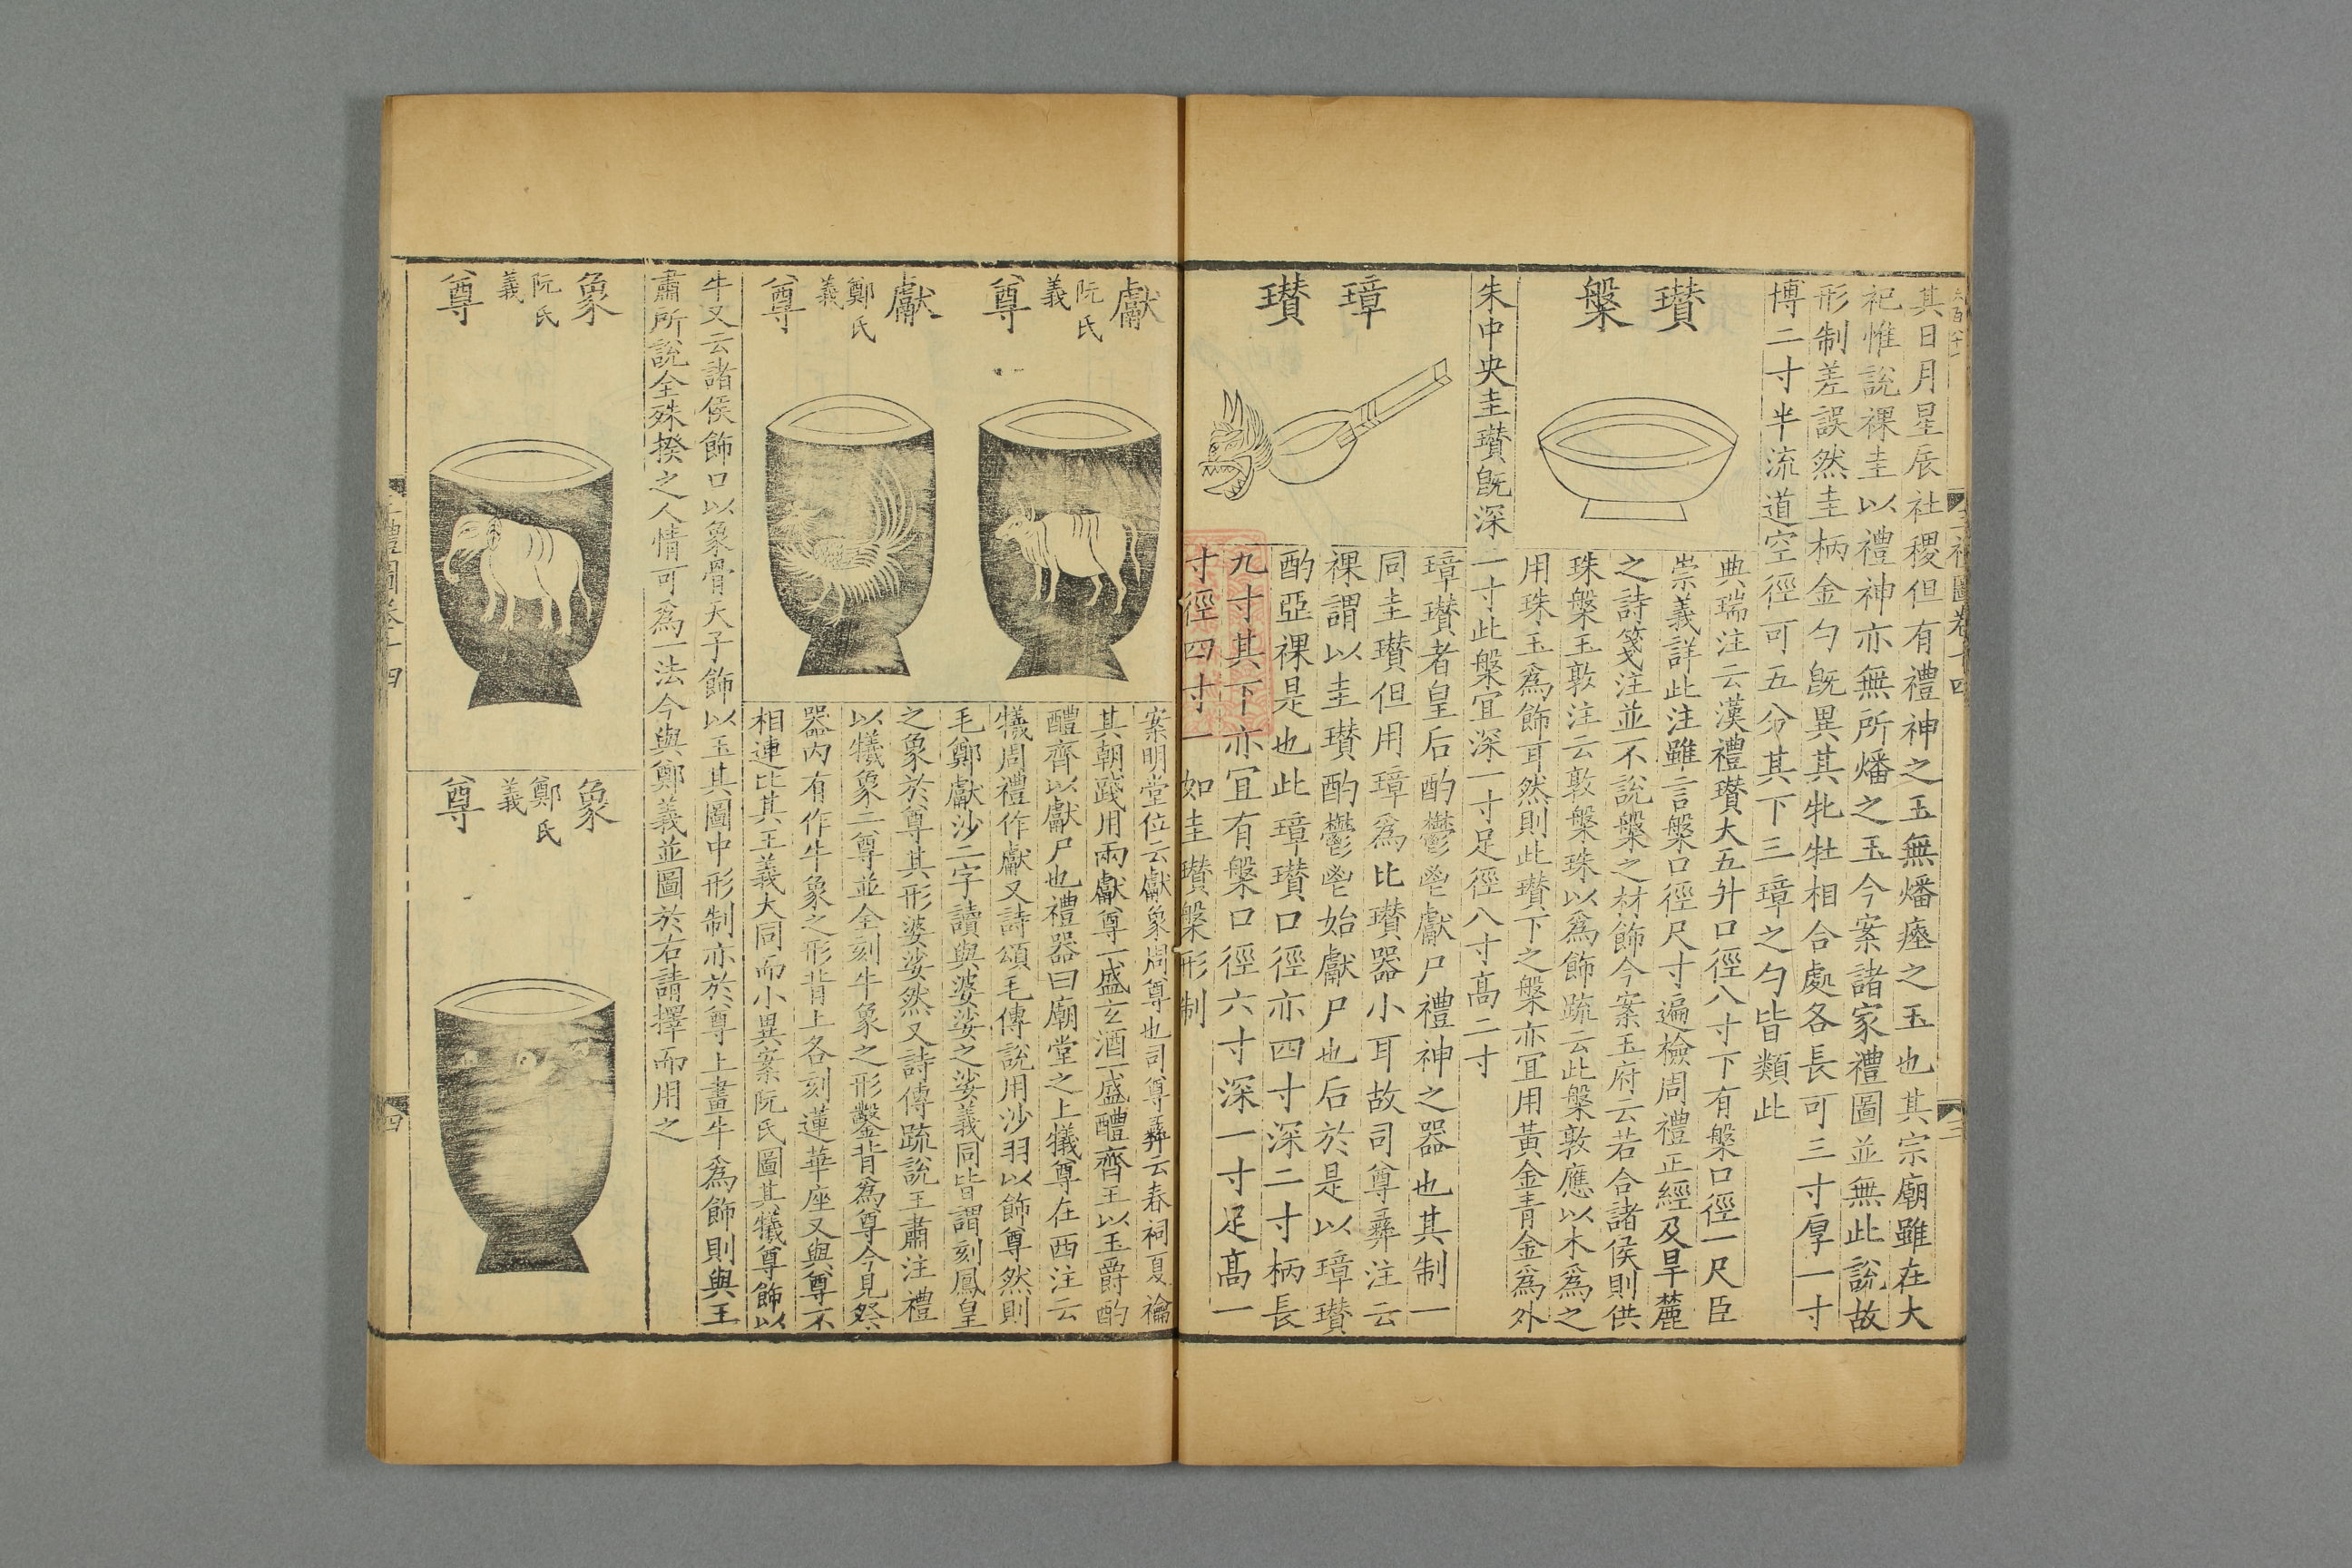 其日月星辰社稷但有禮神之玉無燔瘞之玉也其宗廟雖在大
祀惟說祼圭以禮神亦無所燔之玉今案諸家禮圖並無此說故
形制差誤然圭柄金勺旣異其牝牡相合處各長可三寸厚一寸
博二寸半流道空徑可五分其下三璋之勺皆類此
瓚槃
典瑞注云漢禮瓚大五升口徑八寸下有槃口徑一尺臣
崇義詳此注雖言槃口徑尺寸遍檢周禮正經及旱麓
之詩箋注並不說槃之材飾今案玉府云若合諸侯則供
珠槃玉敦注云敦槃珠以爲飾疏云此槃敦應以木爲之
用珠玉爲飾耳然則此瓚下之槃亦宜用黃金靑金爲外
朱中央圭瓚旣深一寸此槃宜深一寸足徑八寸高二寸
璋瓚
璋瓚者皇后酌鬱鬯獻尸禮神之器也其制一
同圭瓚但用璋爲比瓚器小耳故司尊彝注云
祼謂以圭瓚酌鬱鬯始獻尸也后於是以璋瓚
酌亞祼是也此璋瓚口徑亦四寸深二寸柄長
九寸其下亦宜有槃口徑六寸深一寸足高一
寸徑四寸一如圭瓚槃形制
獻
阮氏
義
尊
獻
鄭氏
義
尊
案明堂位云獻象周尊也司尊彝云春祠夏禴
其朝踐用兩獻尊一盛玄酒一盛醴齊王以玉爵酌
醴齊以獻尸也禮器曰廟堂之上犧尊在西注云
犧周禮作獻又詩頌毛傳說用沙羽以飾尊然則
毛鄭獻沙二字讀與婆娑之娑義同皆謂刻鳳皇
之象於尊其形婆娑然又詩傳疏說王肅注禮
以犧象二尊並全刻牛象之形鑿背爲尊今見祭
器內有作牛象之形背上各刻蓮華座又與尊不
相連比其王義大同而小異案阮氏圖其犧尊飾以
牛又云諸侯飾口以象骨天子飾以玉其圖中形制亦於尊上畫牛爲飾則與王
肅所說全殊揆之人情可爲一法今與鄭義並圖於右請擇而用之
象
阮氏
義
尊
象
鄭氏
義
尊
四